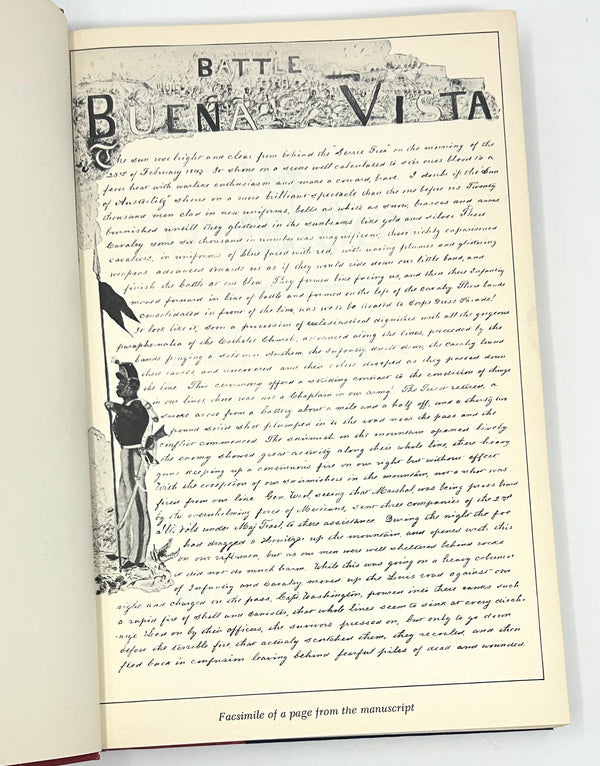 BATTLE
BUENA VISTA
The sun rose bright and clear from behind the "Serrie Frio" on the morning of the
23rd of February 1847. It shone on a scene well calculated to stir ones blood to a
fever heat with warlike enthusiasm and make a coward, brave. I doubt if the "Sun
of Austerlitz" shone on a more brilliant spectacle than the one before us Twenty
thousand men clad in new uniforms, belts as white as snow, brasses and arms
burnished untill they glistened in the sunbeams like gold and silver. There
Cavalry some six thousand in number was magnificent, these richly caparisoned
cavaliers, in uniforms of blue faced with red, with waving plumes and glittering
weapons advanced towards us as if they would ride down our little band, and
finish the battle at one blow. They formed line facing us, and then there Infantry
moved forward in line of battle and formed on the left of the cavalry There bands
consolidated in front of the line, was we to be treated to Corps Dress Parade!
It look like it, soon a procession of ecclesiastical dignities with all the gorgeous
paraphernalia of the Catholic Church, advanced along the lines, preceded by the
bands playing a solemn Anthem, the Infantry knelt down, the cavalry lowered
there lances and uncovered and their colors drooped as they passed down
the line. This ceremony offord a striking contrast to the condition of things
in our lines there was not a Chaplain in our army! The Priest retired, a
smoke arose from a battery about a mile and a half off, and a thirty two
pound solid shot plumped in to the road near the pass and the
conflict commenced. The skirmish in the mountain opened lively
the enemy showed great activity along their whole line, there heavy
guns keeping up a continuous fire on our right but without effect
With the exception of our skirmishers in the mountain, not a shot was
fired from our line. Gen Wool, seeing that Marshal, was being press hard
by the overwhelming force of Mexicans, sent three companies of the 2nd
Ill. Vols under Maj Trail to there assistance. During the night the foe
had dragged a Howitzer up the mountain, and opened with this
on our riflemen, but as our men were well sheltered behind rocks
it did not do much harm. While this was going on a heavy column
of Infantry and Cavalry moved up the Luis road against our
right and charged on the pass, Capt Washington, poured into there ranks such
a rapid fire of Shell and Canister, that whole lines seem to sink at every disch-
arge Led on by their officers, the survivors pressed on, but only to go down
before the terrible fire, that actualy scotched them, they recoiled, and then
fled back in confusion leaving behind fearful piles of dead and wounded.
Facsimile of a page from the manuscript